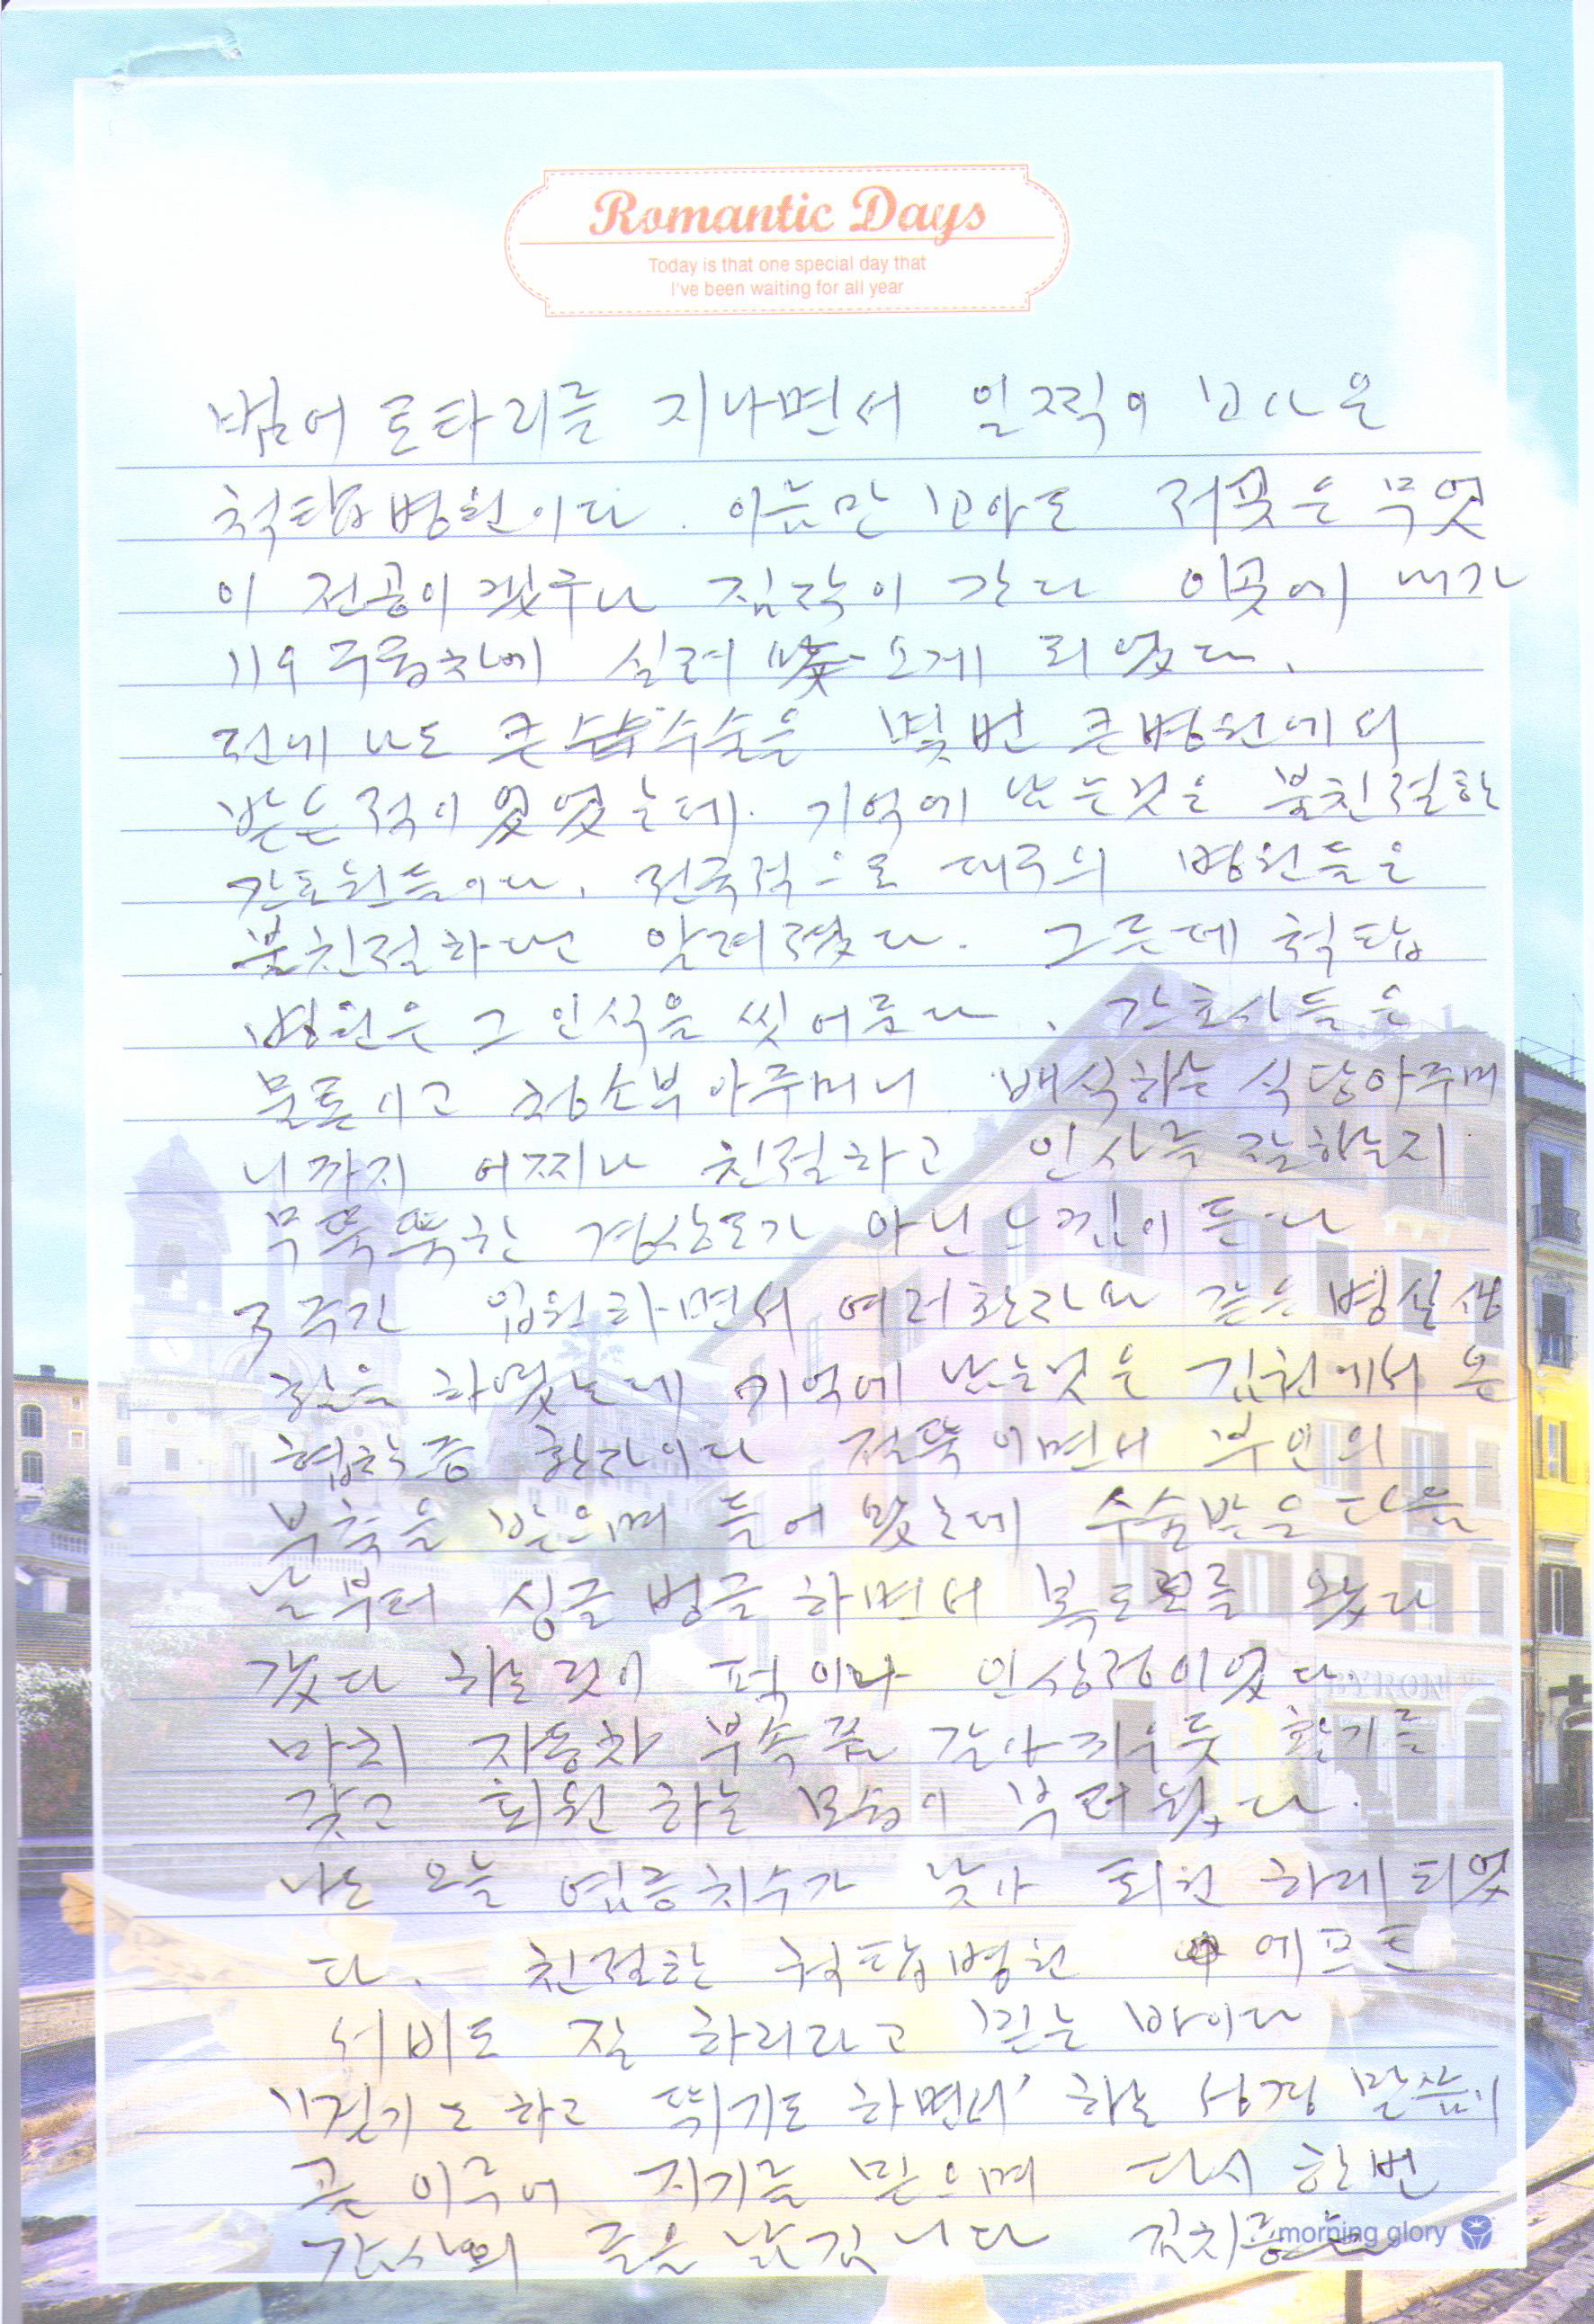 Romantic Days
Today is that one special day that
I've been waiting for all year
범어 로타리를 지나면서 일찍이 보아온
척탑병원이다. 이름만 보아도 저곳은 무엇
이 전공이겠구나 짐작이 간다 이곳에 내가
119 구룡차에 실려 오게 되었다.
전에 나도 큰 수술을 몇번 큰병원에서
받은적이 있었는데. 기억에 남는것은 불친절한
간호원들이다. 전국적으로 대구의 병원들은
불친절하다고 알려졌다. 그른데 척탑
병원은 그 인식을 씻어준다. 간호사들은
물론이고 청소부 아주머니 배식하는 식당아주머
니까지 어찌나 친절하고 인사를 잘하는지
무뚝뚝한 경상도가 아닌 느낌이 든다
3주간 입원하면서 여러환자와 같은 병실생
활을 하였는데 기억에 남는것은 김천에서 온
협착증 환자이다 절뚝이면서 부인의
부축을 받으며 들어 왔는데 수술받은 다음
날부터 싱글벙글 하면서 복도를 왔다
갔다 하는것이 퍽이나 인상적이었다.
마치 자동차 부속품 갈아끼우듯 활기를
갖고 퇴원 하는 모습이 부러웠다.
나도 오늘 염증치수가 낮아 퇴원 하게 되었
다. 친절한 척탑병원 에프트
서비도 잘 하리라고 믿는 바이다
"걷기도 하고 뛰기도 하면서" 하는 성경 말씀이
곧 이루어 지기를 믿으며 다시 한번
감사의 글을 남깁니다
morning glory